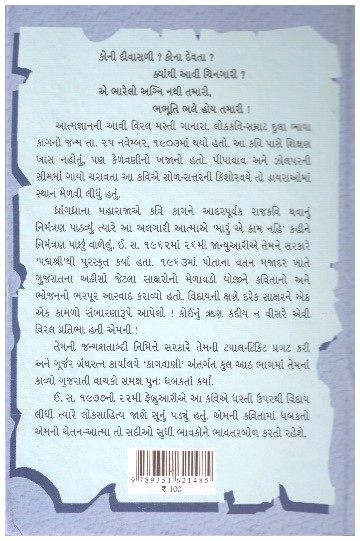 કોની દીવાસળી ? કોના દેવતા ?
ક્યાંથી આવી ચિનગારી ?
એ ભારેલો અગ્નિ નથી તમારો,
ભભૂતિ ભલે હોય તમારી !
આત્મજ્ઞાનની આવી વિરલ મસ્તી ગાનારા, લોકકવિ-સમ્રાટ દુલા ભાયા
કાગનો જન્મ તા. ૨૫ નવેમ્બર, ૧૯૦૩માં થયો હતો. આ કવિ પાસે શિક્ષણ
ખાસ નહોતું, પણ કેળવણીનો ખજાનો હતો. પીપાવાવ અને ઝોલપરની
સીમમાં ગાયો ચરાવતા આ કવિએ સોળ-સત્તરની કિશોરવયે તો ડાયરાઓમાં
સ્થાન મેળવી લીધું હતું.
ધ્રાંગધ્રાના મહારાજાએ કવિ કાગને આદરપૂર્વક રાજકવિ થવાનું
નિમંત્રણ પાઠવ્યું ત્યારે આ અલગારી આત્માએ 'મારું એ કામ નહિ' કહીને
નિમંત્રણ પાછું વાળેલું. ઈ. સ. ૧૯૬૨માં ૨૬મી જાન્યુઆરીએ તેમને સરકારે
'પદ્મશ્રી'થી પુરસ્કૃત કર્યા હતા. ૧૯૬૩માં પોતાના વતન મજાદર ખાતે
ગુજરાતના અઢીસો જેટલા સાક્ષરોનો મેળાવડો યોજીને કવિતાનો અને
ભોજનનો ભરપૂર આસ્વાદ કરાવ્યો હતો. વિદાયની ક્ષણે દરેક સાક્ષરને એક
એક કામળો સંભારણારૂપે આપેલો ! કોઈનું ઋણ કદીય ન વીસરે એવી
વિરલ પ્રતિભા હતી એમની !
તેમની જન્મશતાબ્દી નિમિત્તે સરકારે તેમની ટપાલ-ટિકિટ પ્રગટ કરી
અને ગૂર્જર ગ્રંથરત્ન કાર્યાલયે 'કાગવાણી' અંતર્ગત કુલ આઠ ભાગમાં તેમનાં
કાવ્યો ગુજરાતી વાચકો સમક્ષ પુનઃ ધબકતાં કર્યાં.
ઈ. સ. ૧૯૭૭ની ૨૨મી ફેબ્રુઆરીએ આ કવિએ ધરતી ઉપરથી વિદાય
લીધી ત્યારે લોકસાહિત્ય જાણે સૂનું પડ્યું હતું. એમની કવિતામાં ધબકતો
એમનો ચેતન-આત્મા તો સદીઓ સુધી ભાવકીને ભાવતરબોળ કરતો રહેશે.
9 789351 621485
₹ 100